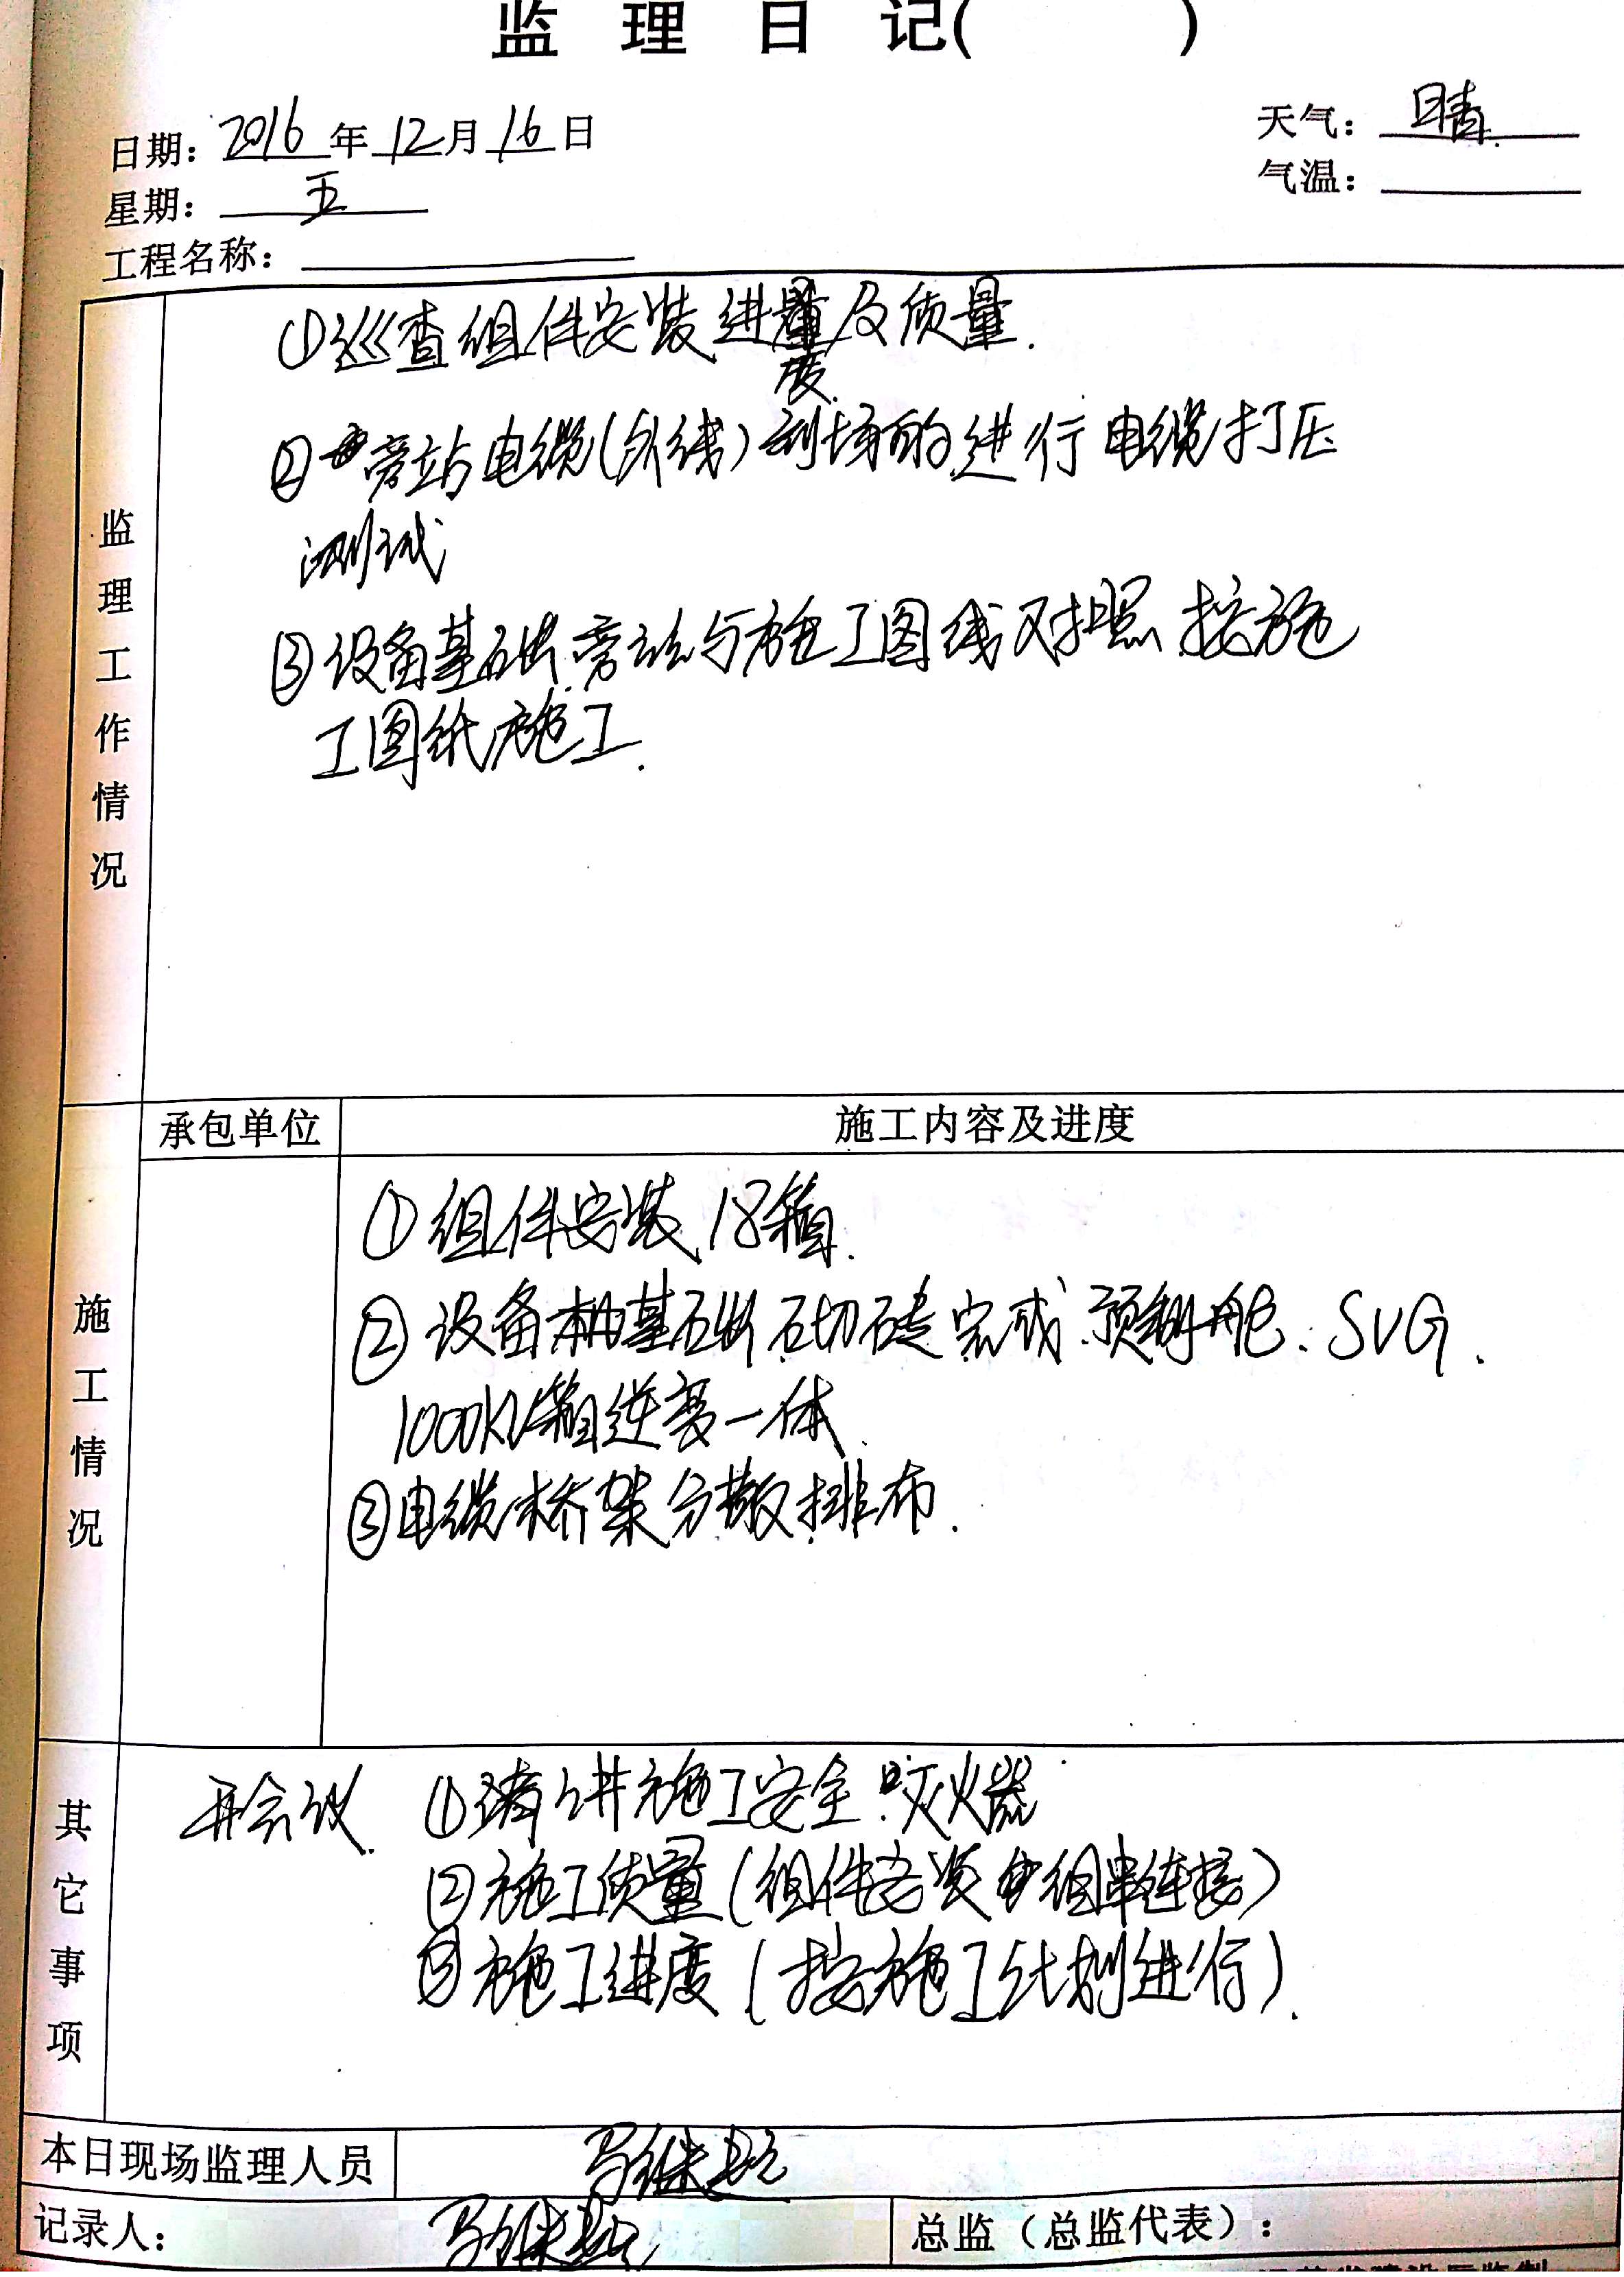 监理日记( )
日期：2016年12月16日
天气：晴.
星期：五
气温：
工程名称：
监理工作情况
①巡查组件安装进度及质量.
②旁站电缆(外线)到场的进行电缆打压
测试
③设备基础旁站与施工图线对照.按施
工图纸施工.
承包单位
施工内容及进度
施工情况
①组件安装18箱.
②设备基础砌砖完成.预制舱.SVG.
1000KV箱逆变一体
③电缆桥架分散排布.
其它事项
开会议. ①讲施工安全.灭火器
②施工质量(组件安装 组串连接)
③施工进度(按施工计划进行).
本日现场监理人员
马继超
记录人：
马继超
总监（总监代表）：